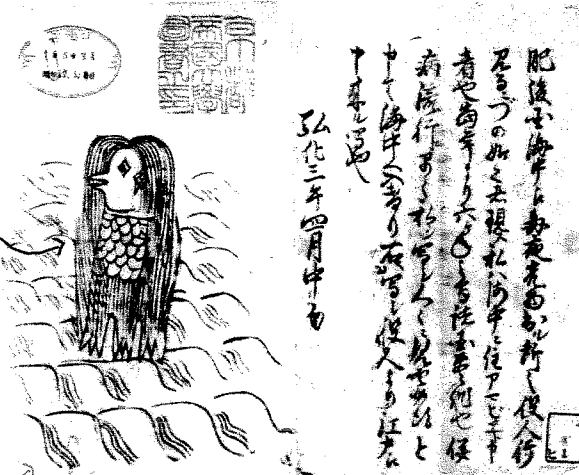 京都
帝国大学
図書之印
肥後国海中江毎夜光物出ル所之役人行
見るニづの如之者現ス私ハ海中ニ住アマビヱト申
者也当年より六ヶ年之間諸国豊作也併
病流行早々私シ写シ人々ニ見セ候得と
申て海中へ入けり右写シ役人より江戸江
申来ル写也
弘化三年四月中旬